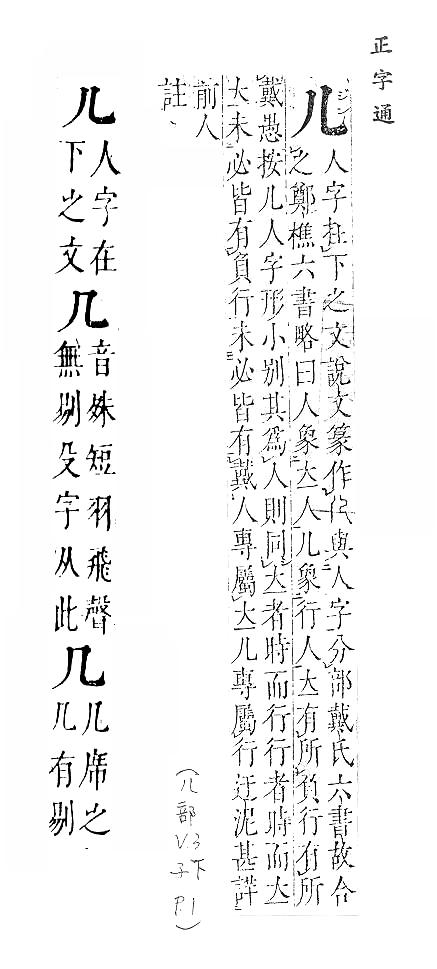 正字通
儿人字在下之文說文篆作與人字分部戴氏六書故合
之鄭樵六書略曰人象立人儿象行人立有所負行有所
戴愚按儿人字形小別其爲人則同立者時而行行者時而立
立未必皆有負行未必皆有戴人專屬立儿專屬行迂泥甚詳
前人
註
儿人字在下之文
几音殊短羽飛聲無剔殳字从此
几几席之几有剔
(儿部 V.3 子下 P.1)